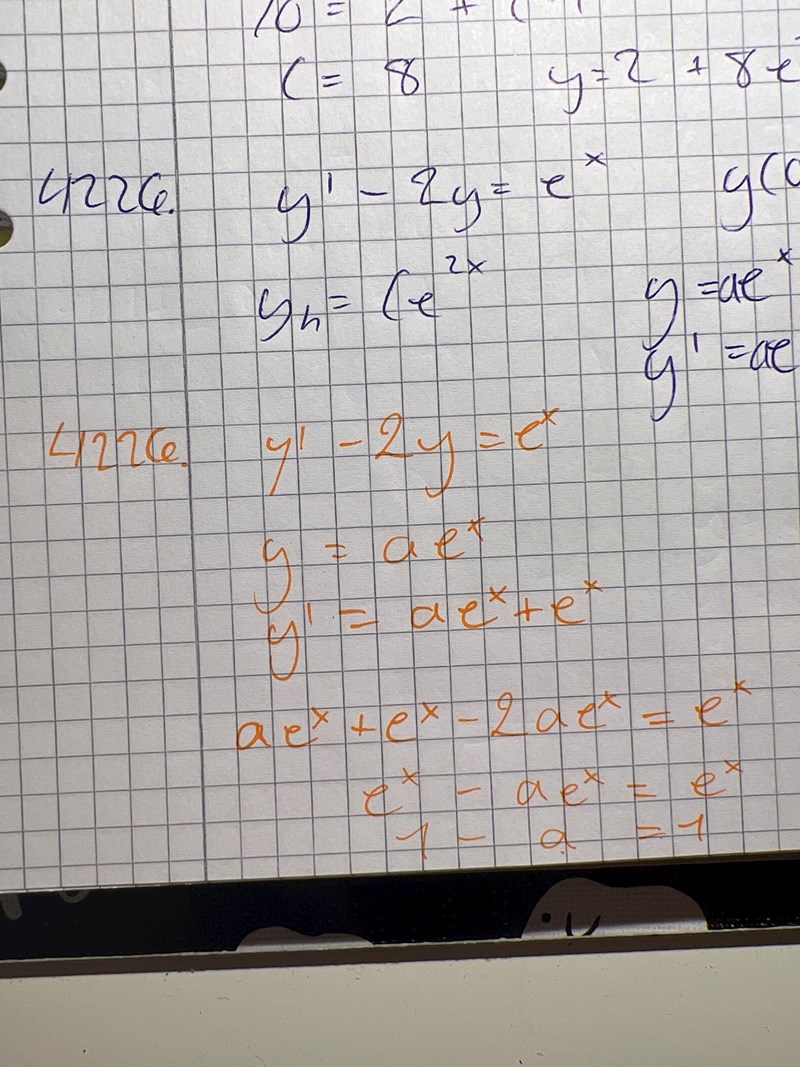 10 = 2 + C · 1
C = 8 y = 2 + 8e
4226. y' - 2y = e^x y(0
y_h = Ce^{2x} y = ae^x
y' = ae
4226. y' - 2y = e^x
y = ae^x
y' = ae^x + e^x
ae^x + e^x - 2ae^x = e^x
e^x - ae^x = e^x
1 - a = 1